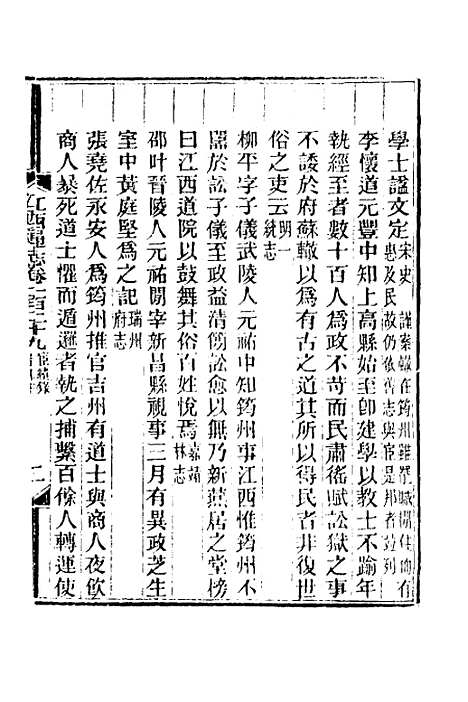 學士諡文定宋史 謹案轍在筠州雖
惠及民故仍依舊志與官是邦者並列
李懷道元豐中知上高縣始至卽建學以教士不踰年
執經至者數十百人爲政不苛而民肅徭賦訟獄之事
不諉於府蘇轍以爲有古之道其所以得民者非復世
俗之吏云明一統志
柳平字子儀武陵人元祐中知筠州事江西惟筠州不
嚚於訟子儀至政益清簡訟愈以無乃新燕居之堂榜
曰江西道院以鼓舞其俗百姓悅焉嘉靖林志
邵叶晉陵人元祐閒宰新昌縣視事三月有異政芝生
室中黃庭堅爲之記瑞州府志
張堯佐永安人爲筠州推官吉州有道士與商人夜飮
商人暴死道士懼而遁邏者執之捕繫百餘人轉運使
江西通志卷一百二十九
二